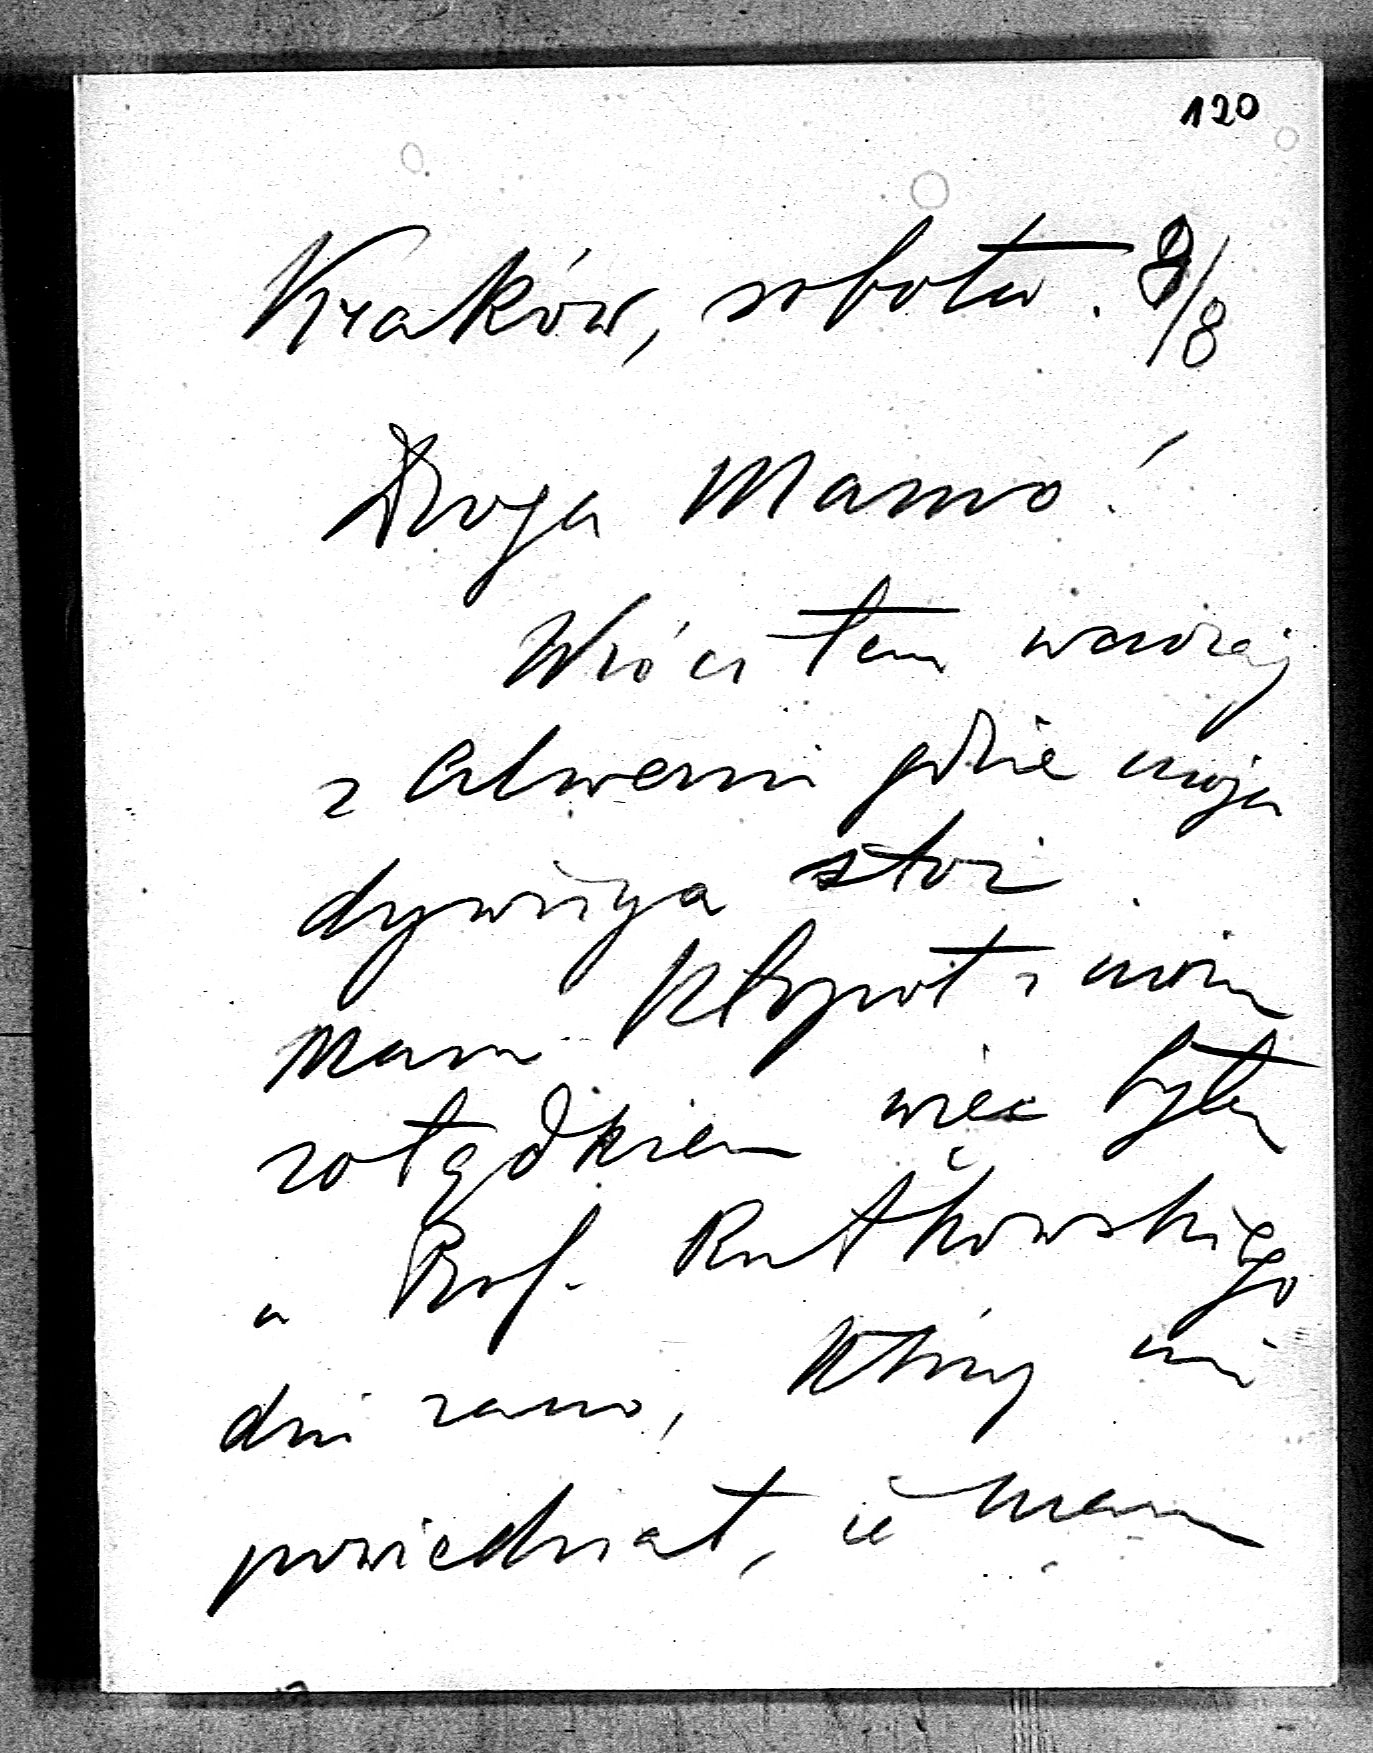 120
Kraków, sobota. 8/8
Droga Mamo!
Wróciłem wczoraj
z Alwerni gdzie moja
dywizya stoi.
Mam kłopot z moim
żołądkiem więc byłem
u Prof. Rutkowskiego
dziś rano, który mi
powiedział, że mam